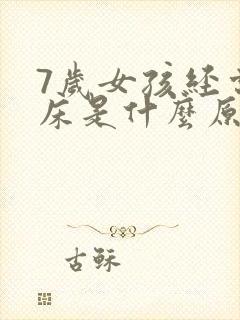 7歲女孩經常
床是什麼原
古穌